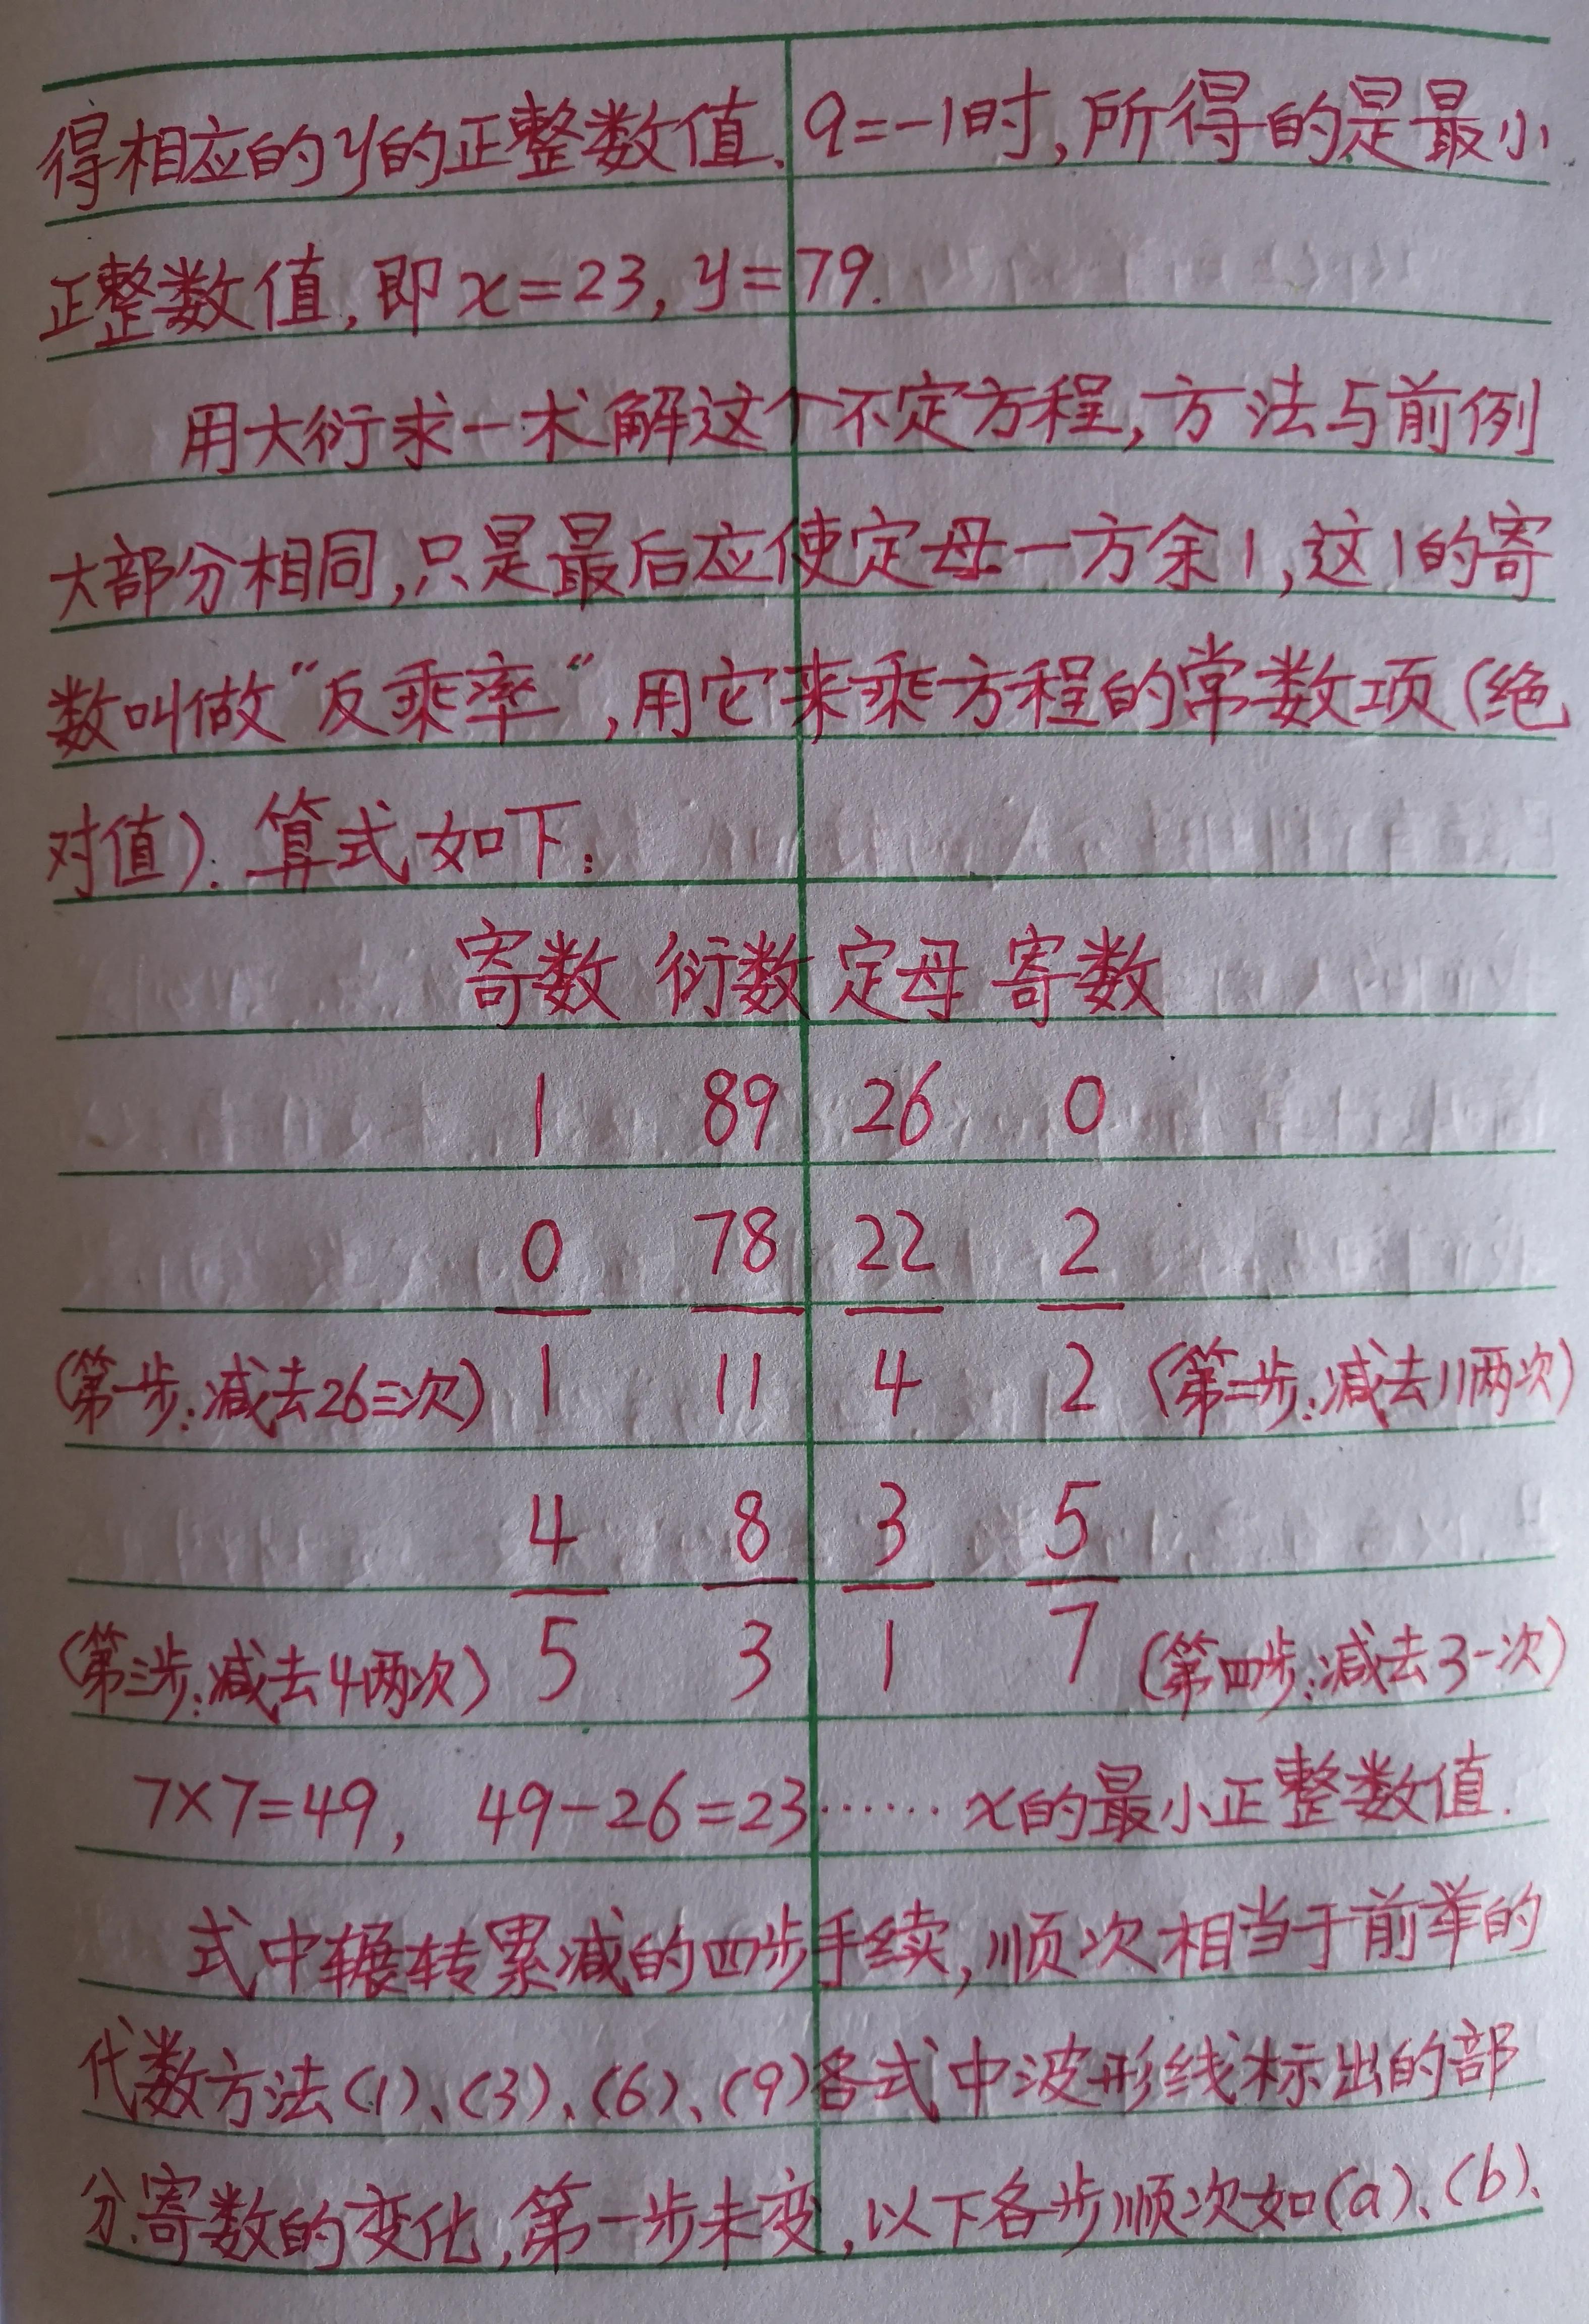 得相应的y的正整数值. q=-1时,所得的是最小
正整数值,即x=23,y=79.
用大衍求一术解这个不定方程,方法与前例
大部分相同,只是最后应使定母一方余1,这1的寄
数叫做“反乘率“,用它来乘方程的常数项(绝
对值).算式如下:
寄数 衍数 定母 寄数
1 89 26 0
0 78 22 2
(第一步:减去26三次) 1 11 4 2 (第二步:减去11两次)
4 8 3 5
(第三步:减去4两次) 5 3 1 7 (第四步:减去3一次)
7×7=49, 49-26=23……x的最小正整数值.
式中辗转累减的四步手续,顺次相当于前举的
代数方法(1)、(3)、(6)、(9)各式中波形线标出的部
分.寄数的变化,第一步未变,以下各步顺次如(a)、(b)、